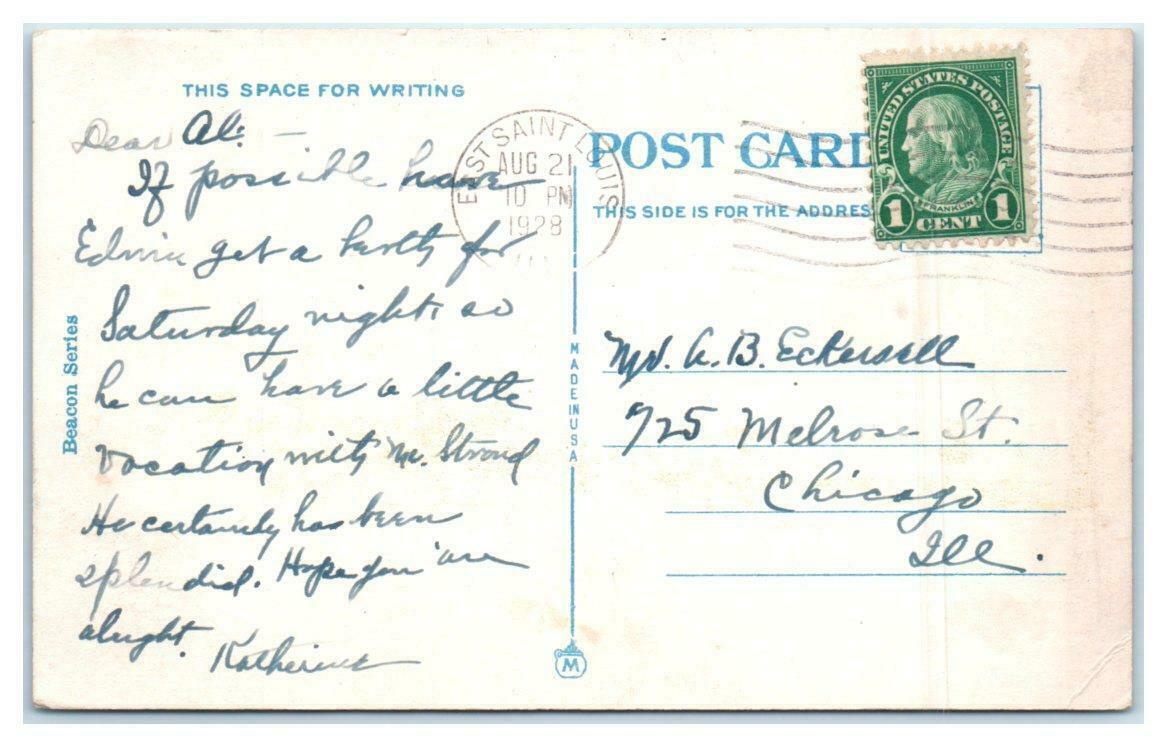 THIS SPACE FOR WRITING
Dear Al: —
If possible have
Edwin get a berth for
Saturday night so
he can have a little
vacation with Mr. Strond
He certainly has been
splendid. Hope you are
alright.
Katherine
Beacon Series
MADE IN USA
M
EAST SAINT LOUIS
AUG 21
10 PM
1928
POST CARD
THIS SIDE IS FOR THE ADDRES
UNITED STATES POSTAGE
FRANKLIN
1 CENT 1
Mr. A. B. Eckersall
725 Melrose St.
Chicago
Ill.